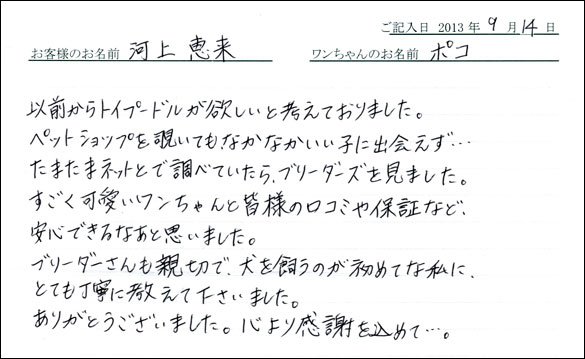 ご記入日 2013年 9月 14日
お客様のお名前 河上 恵来 ワンちゃんのお名前 ポコ
以前からトイプードルが欲しいと考えておりました。
ペットショップを覗いてもなかなかいい子に出会えず…
たまたまネットとで調べていたら、ブリーダーズを見ました。
すごく可愛いワンちゃんと皆様の口コミや保証など、
安心できるなあと思いました。
ブリーダーさんも親切で、犬を飼うのが初めてな私に、
とても丁寧に教えて下さいました。
ありがとうございました。心より感謝を込めて…。